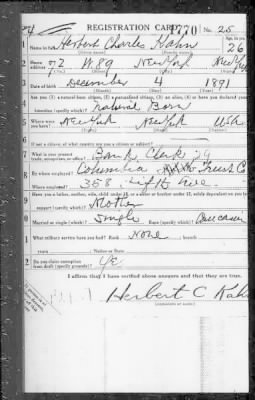 REGISTRATION CARD 1770 No. 25
1 Name in full Herbert Charles Kahn Age, in yrs. 26
2 Home address 72 W. 89 New York New York
3 Date of birth December 4 1891
4 Are you (1) a natural-born citizen, (2) a naturalized citizen, (3) an alien, (4) or have you declared your intention (specify which)? Natural Born
5 Where were you born? New York New York USA
6 If not a citizen, of what country are you a citizen or subject?
7 What is your present trade, occupation, or office? Bank Clerk 29
8 By whom employed? Columbia Trust Co
Where employed? 358 Fifth Ave.
9 Have you a father, mother, wife, child under 12, or a sister or brother under 12, solely dependent on you for support (specify which)? Mother
10 Married or single (which)? Single Race (specify which)? Caucasian
11 What military service have you had? Rank None branch
years Nation or State
12 Do you claim exemption from draft (specify grounds)? Yes
I affirm that I have verified above answers and that they are true.
Herbert C Kahn